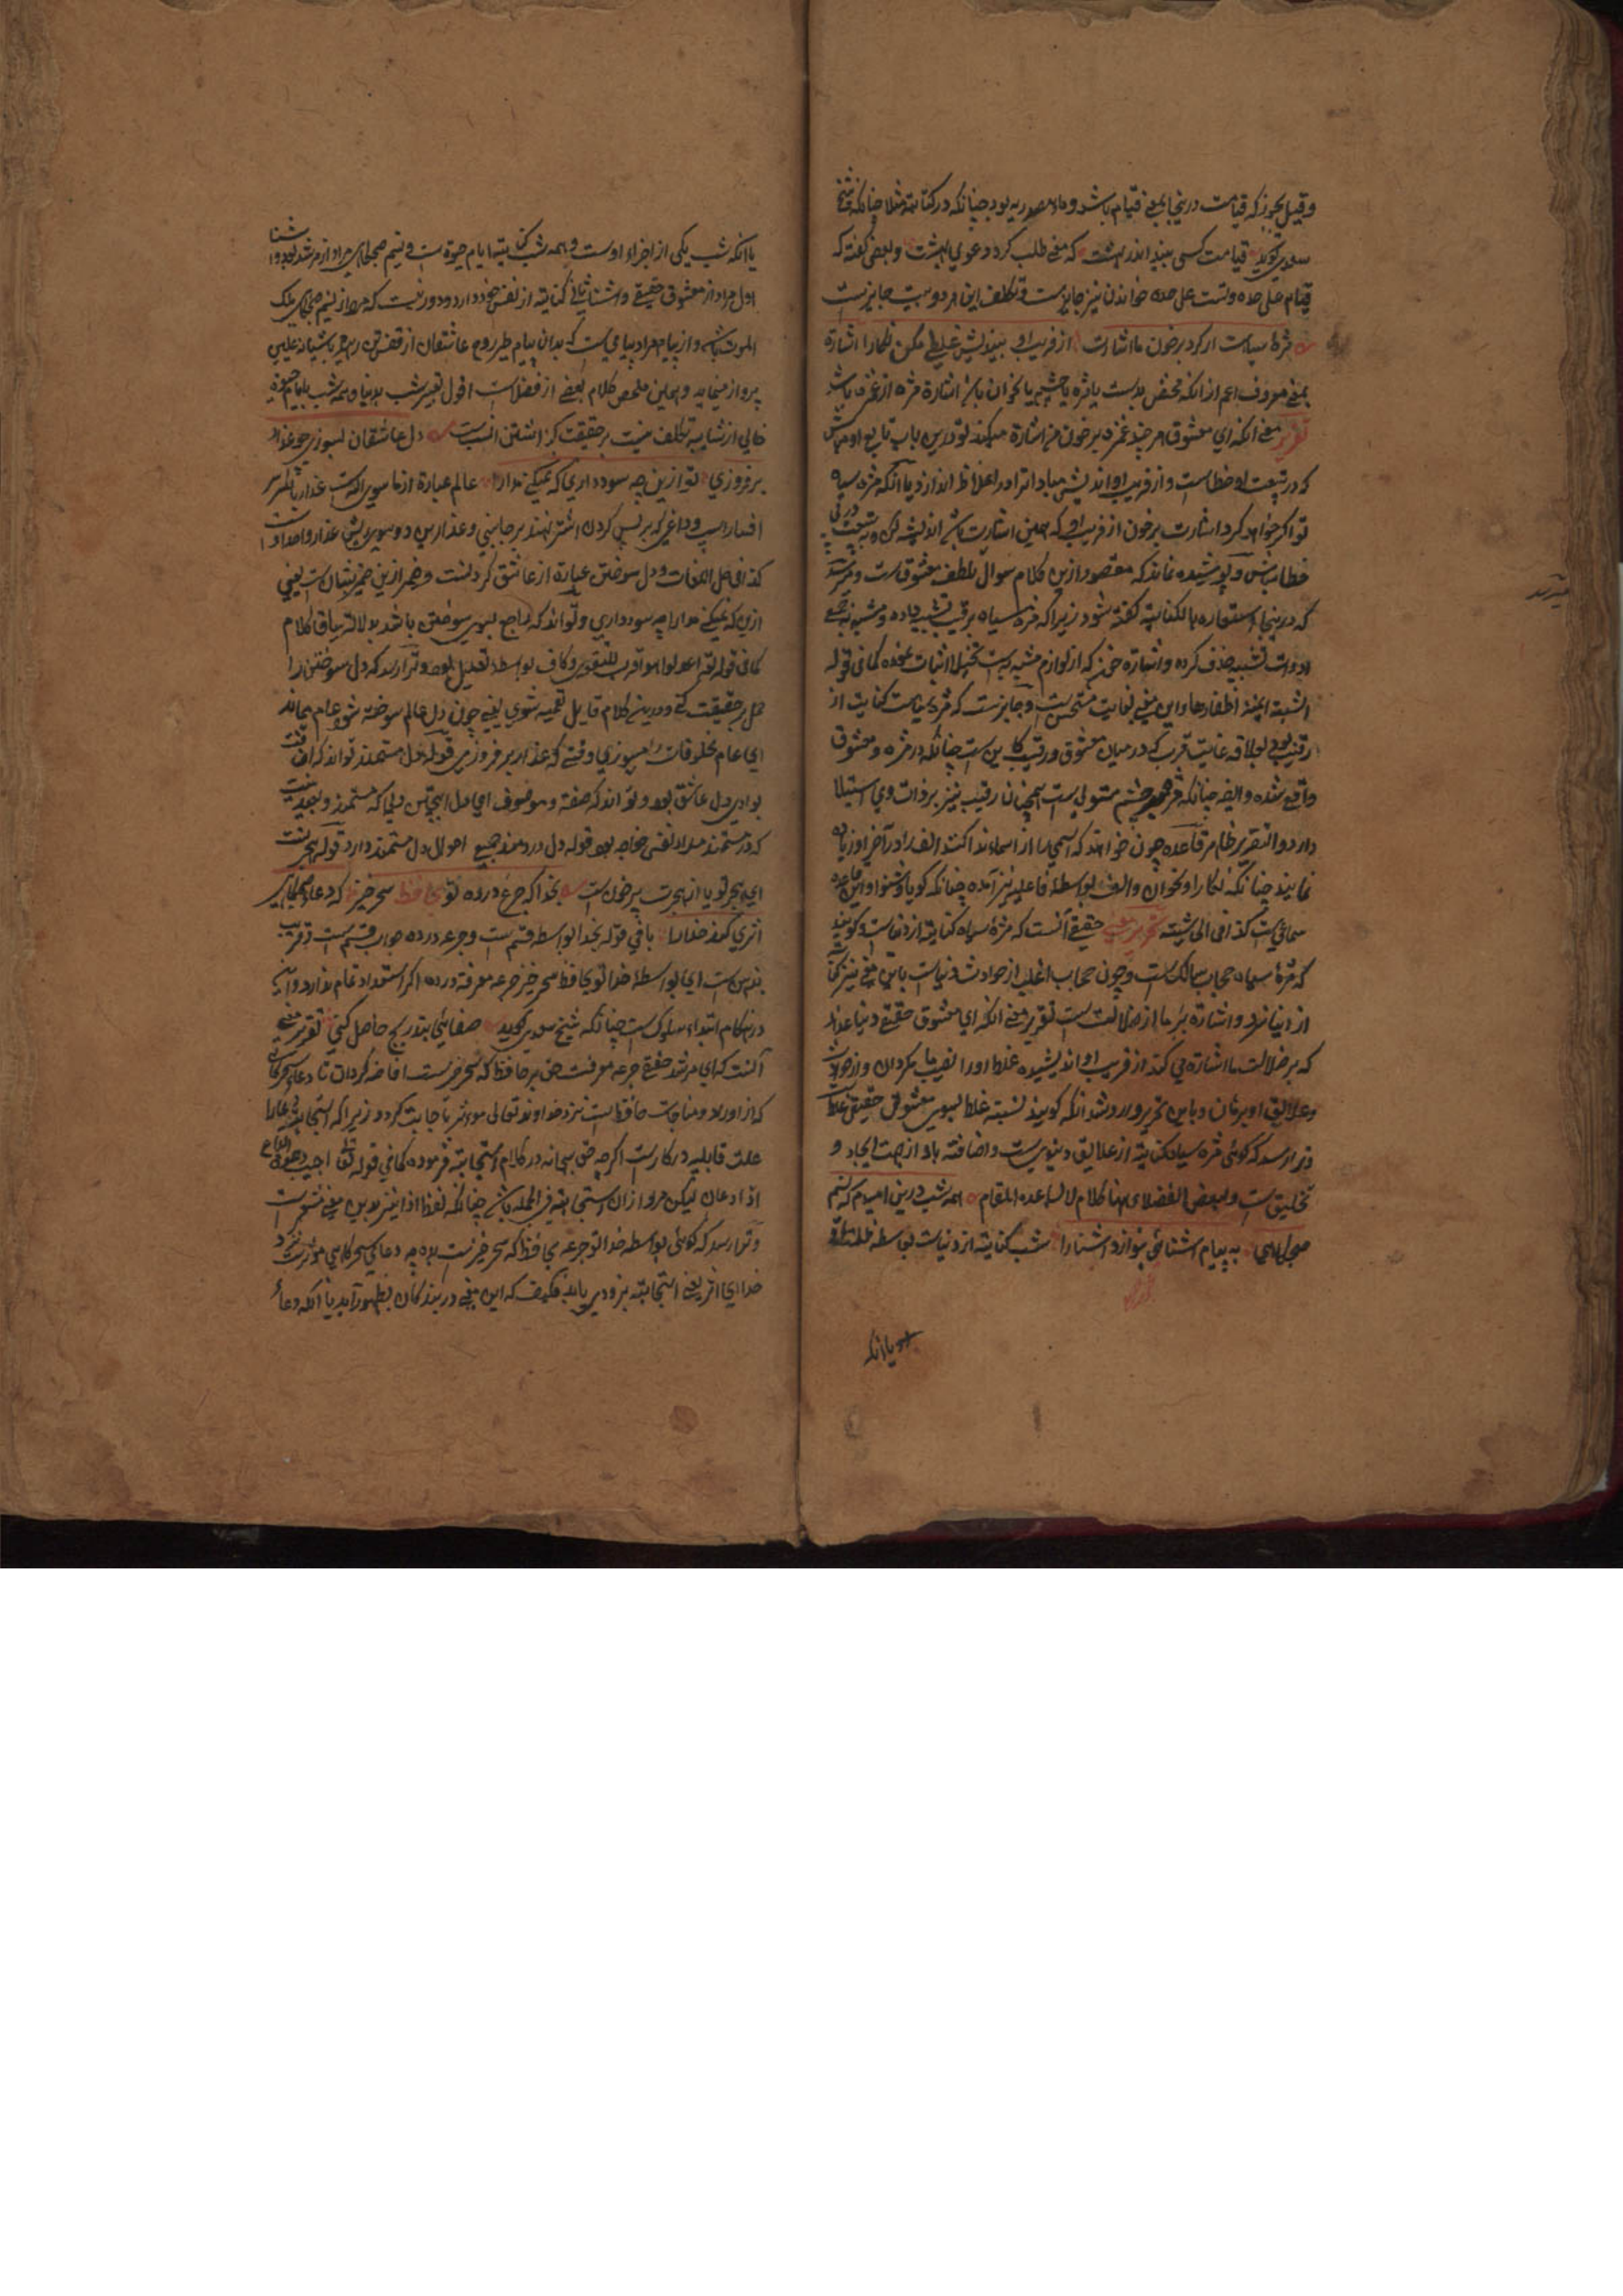 وقیل یجوز که قیامت درینجا بمعنی قیام باشد و ماء مصدریه بود چنانکه در کتابته مثلا چنانکه شیخ
سعدی گوید قیامت کسی بیند اندر بهشت که معنی طلب کرد و دعوی بهشت و بعضی گفته که
قیام علی حده و تست علی حده خواندن نیز جایز ست و تکلف این هر دو بیت جایز ست
مژهٔ سیاهت ار کرد بخون ما اشارت از فریب او بیندیش و غلط مکن نگارا اشارة
بمعنی معروف اعم از آنکه محض بدست یا مژه یا چشم یا بخوان باشد اشارة مژه از غمزه باشد
تقریر معنی آنکه ای معشوق هر چند غمزه بر خون من اشارة میکند تو درین باب تابع او مباش
که در تبعت او خطاست و از فریب او اندیش مبادا ترا در اغلاط اندازد یا آنکه مژه سیه
تو اگر خواهد کرد اشارت بر خون از فریب او که همین اشارت باشد اندیشه کن و به تبعیت
خطا مباش و پوشیده نماند که مقصود ازین کلام سوال بلطف معشوق ست و میرسد
که درینجا استعاره بالکنایه گفته شود زیرا که مژه سیاه برقیب تشبیه داده و مشبه به مع
ادوات تشبیه حذف کرده و اشارة خون که از لوازم مشبه به ست تخییل اثبات نموده کما فی قوله
انشبت المنیة اظفارها و این معنی بغایت مستحسن ست و جایز ست که مژه سیاهت کنایت از
رقیب بود بعلاقه غایت قرب که در میان معشوق و رقیب کاین ست چنانکه در مژه و معشوق
واقع شده و ایضا چنانکه مژه بر چشم مستولی ست همچنان رقیب نیز بر ذات وی استیلا
دارد و التقریر ظاهر قاعده چون خواهند که اسمی را از اسماء ندا کنند الف را در آخر او زیاده
نمایند چنانکه نگارا و بخوان و الف بواسطهٔ فاعلیة نیز آمده چنانکه گویا و شنوا و این قاعده
سماعی ست کذا فی الحاشیته تقریر معنی حقیقی آنست که مژهٔ سیاه کنایته از دنیاست و گویند
که مژهٔ سیاه حجاب سالک ست و چون حجاب اغلب از حوادث دنیاست باین معنی نیز کنایه
از دنیا نمود و اشارة بر ما از ضلالت ست تقریر معنی آنکه ای معشوق حقیقی دنیا غدار
که بر ضلالت ما اشارة می کند از فریب او اندیشیده غلط او را نصیب ما مگردان و از حوادث
و علایق او برهان و باین تحریر وارد نشد آنکه گویند نسبته غلط بسوی معشوق حقیقی غلط ست
و ترا رسد که گوئی مژه سیاه کنایته از علایق دنیوی ست و اضافته باو از جهت ایجاد و
تخلیق ست و لبعض الفضلاء ههنا کلام لا یساعده المقام همه شب درین امیدم که نسیم
صبحگاهی به پیام آشنائی بنوازد آشنا را شب کنایته از دنیاست بواسطه ظلمت او
یا آنکه
میرسد
یا آنکه شب یکی از اجزاء اوست و همه شب کنایته ایام حیوة ست و نسیم صبحگاهی مراد از مرشد بود و آشنا
اول مراد از معشوق حقیقی و آشنا ثانی کنایته از نفس خود دارد و دور نیست که مراد از نسیم صبحگاهی ملک
الموت باشد و از پیام مراد پیامی ست که بدان پیام طیر روح عاشقان از قفس تن رهد و بآشیانه علیین
پرواز مینماید و همین ملخص کلام بعضی از فضلاست اقول تعبیر شب بدنیا و همه شب بایام حیوة
خالی از شایبه تکلف نیست بر حقیقت گذاشتن انسب ست دل عاشقان بسوزی چو عذار
بر فروزی تو ازین چه سود داری که نمیکنی مدارا عالم عبارة از ما سوی الله ست عذار بالکسر
افسار اسپ و داغی که بر پس گردن اشتر نهند بر جانبی و عذارین دو سوی ریش عذار واحد اوست
کذا فی حل اللغات و دل سوختن عبارة از عاشق کردنست و ضمیر ازین ضمیر شان ست یعنی
ازین که نمیکنی مدارا چه سود داری و تواند که راجع بسوی سوختن باشد بدلالة سیاق کلام
کما فی قوله تعالی اعدلوا هو اقرب للتقوی و کاف بواسطه تعلیل بود و ترا رسد که دل سوختن را
حمل بر حقیقت کنی و درینجا کلام قایل تعمیه شوی یعنی چون دل عالم سوخته شود عام بماند
ای عام مخلوقات را میسوزی وقتی که عذار بر فروزی قوله دل مستمند تواند که اضافت
بوادی دل عاشق بود و تواند که صفته و موصوف ای دل این چنین دلی که مستمند و بعید نیست
که در مستمند مراد نفس خواجه بود قوله دل دردمند جمیع احوال دل مستمند دارد قوله هجرتست
ای هجر تو یا از هجرت پر خون ست بخدا که جرعهٔ ده تو بحافظ سحر خیز که دعاء صبحگاهی
اثری کند خدا را باقی قوله بخدا بواسطه قسم ست و جرعه در ده جواب قسم ست و قریب
بدین ست ای بواسطهٔ خدا تو بحافظ سحر خیز جرعه معرفته در ده اگر استعداد تمام ندارد و این
در هنگام ابتداء سلوک ست چنانکه شیخ سعدی گوید صفائی بتدریج حاصل کنی تقریر معنی
آنست که ای مرشد حقیقی جرعه معرفت حق بر حافظ که سحر خیز ست افاضه گردان تا دعاء سحرگاهی
که از اوراد و مناجات حافظ است نزد خداوند تعالی موثر باجابت گردد زیرا که استجابت دعا را
علت قابلیه درکار ست اگر چه حق سبحانه در کلام استجابته فرموده کما فی قوله تعالی اجیب دعوة الداع
اذا دعان لیکن مراد از ان استجابته فی الجمله باشد چنانکه لفظ اذا نیز بدین معنی مشعر ست
و ترا رسد که گوئی بواسطه خدا تو جرعه بحافظ که سحر خیز ست بده چه دعاء سحرگاهی موثر ست نزد
خدا ای اثر یعنی استجابته بزودی یابد فکیف که این معنی در بندگان بظهور آید یا آنکه دعاء